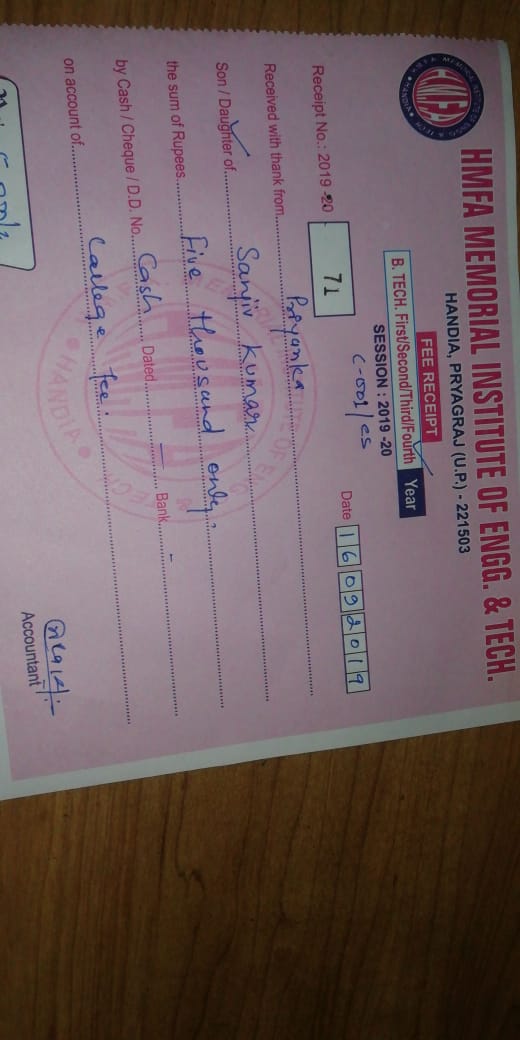 HMFA MEMORIAL INSTITUTE OF ENGG. & TECH.
HANDIA, PRYAGRAJ (U.P.) - 221503
FEE RECEIPT
B. TECH. First/Second/Third/Fourth Year
SESSION : 2019 -20
C-001/CS
Receipt No.: 2019-20 71 Date 16092019
Received with thank from Priyanka
Son / Daughter of Sanjiv Kumar
the sum of Rupees Five thousand only.
by Cash / Cheque / D.D. No. Cash Dated — Bank -
on account of College fee.
Accountant